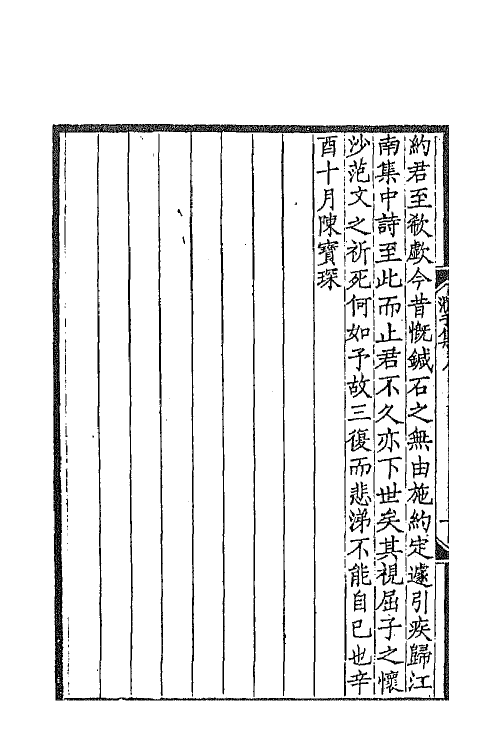 約君至欷歔今昔慨鍼石之無由施約定遽引疾歸江
南集中詩至此而止君不久亦下世矣其視屈子之懷
沙范文之祈死何如予故三復而悲涕不能自已也辛
酉十月陳寶琛